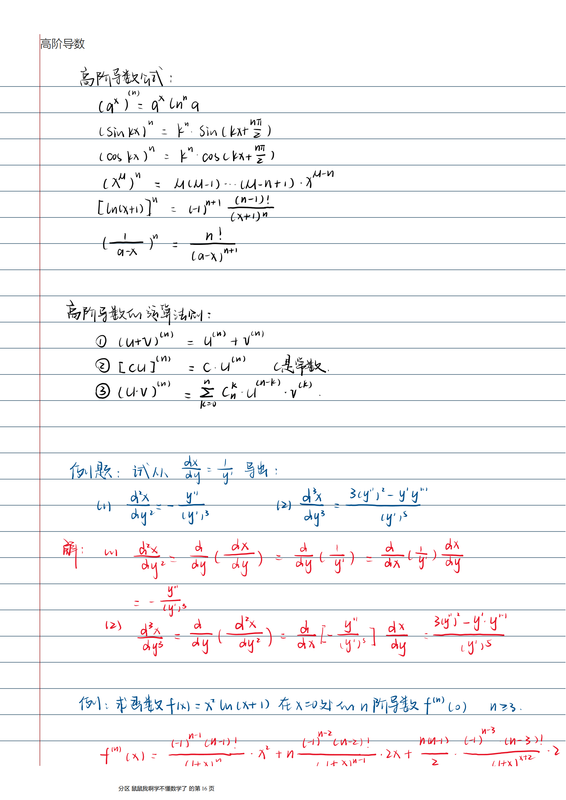 高阶导数
高阶导数公式：
(a^x)^(n) = a^x ln^n a
(sin kx)^n = k^n · sin(kx + nπ/2)
(cos kx)^n = k^n · cos(kx + nπ/2)
(x^μ)^n = μ(μ-1)···(μ-n+1) · x^(μ-n)
[ln(x+1)]^n = (-1)^(n+1) (n-1)!/(x+1)^n
(1/(a-x))^n = n!/(a-x)^(n+1)
高阶导数的运算法则：
① (u+v)^(n) = u^(n) + v^(n)
② [cu]^(n) = c · u^(n) C是常数.
③ (u·v)^(n) = Σ_(k=0)^n C_n^k · u^(n-k) · v^(k).
例题：试从 dx/dy = 1/y' 导出：
(1) d²x/dy² = - y''/(y')³ (2) d³x/dy³ = (3(y'')² - y'y''')/(y')⁵
解： (1) d²x/dy² = d/dy (dx/dy) = d/dy (1/y') = d/dx (1/y') dx/dy
= - y''/(y')³
(2) d³x/dy³ = d/dy (d²x/dy²) = d/dx [- y''/(y')³] dx/dy = (3(y'')² - y'·y''')/(y')⁵
例：求函数f(x) = x² ln(x+1) 在x=0处的n阶导数 f^(n)(0) n≥3.
f^(n)(x) = (-1)^(n-1) (n-1)!/(1+x)^n · x² + n (-1)^(n-2) (n-2)!/(1+x)^(n-1) · 2x + n(n-1)/2 · (-1)^(n-3) (n-3)!/(1+x)^(x+2) · 2
分区 鼠鼠我啊学不懂数学了 的第 16 页